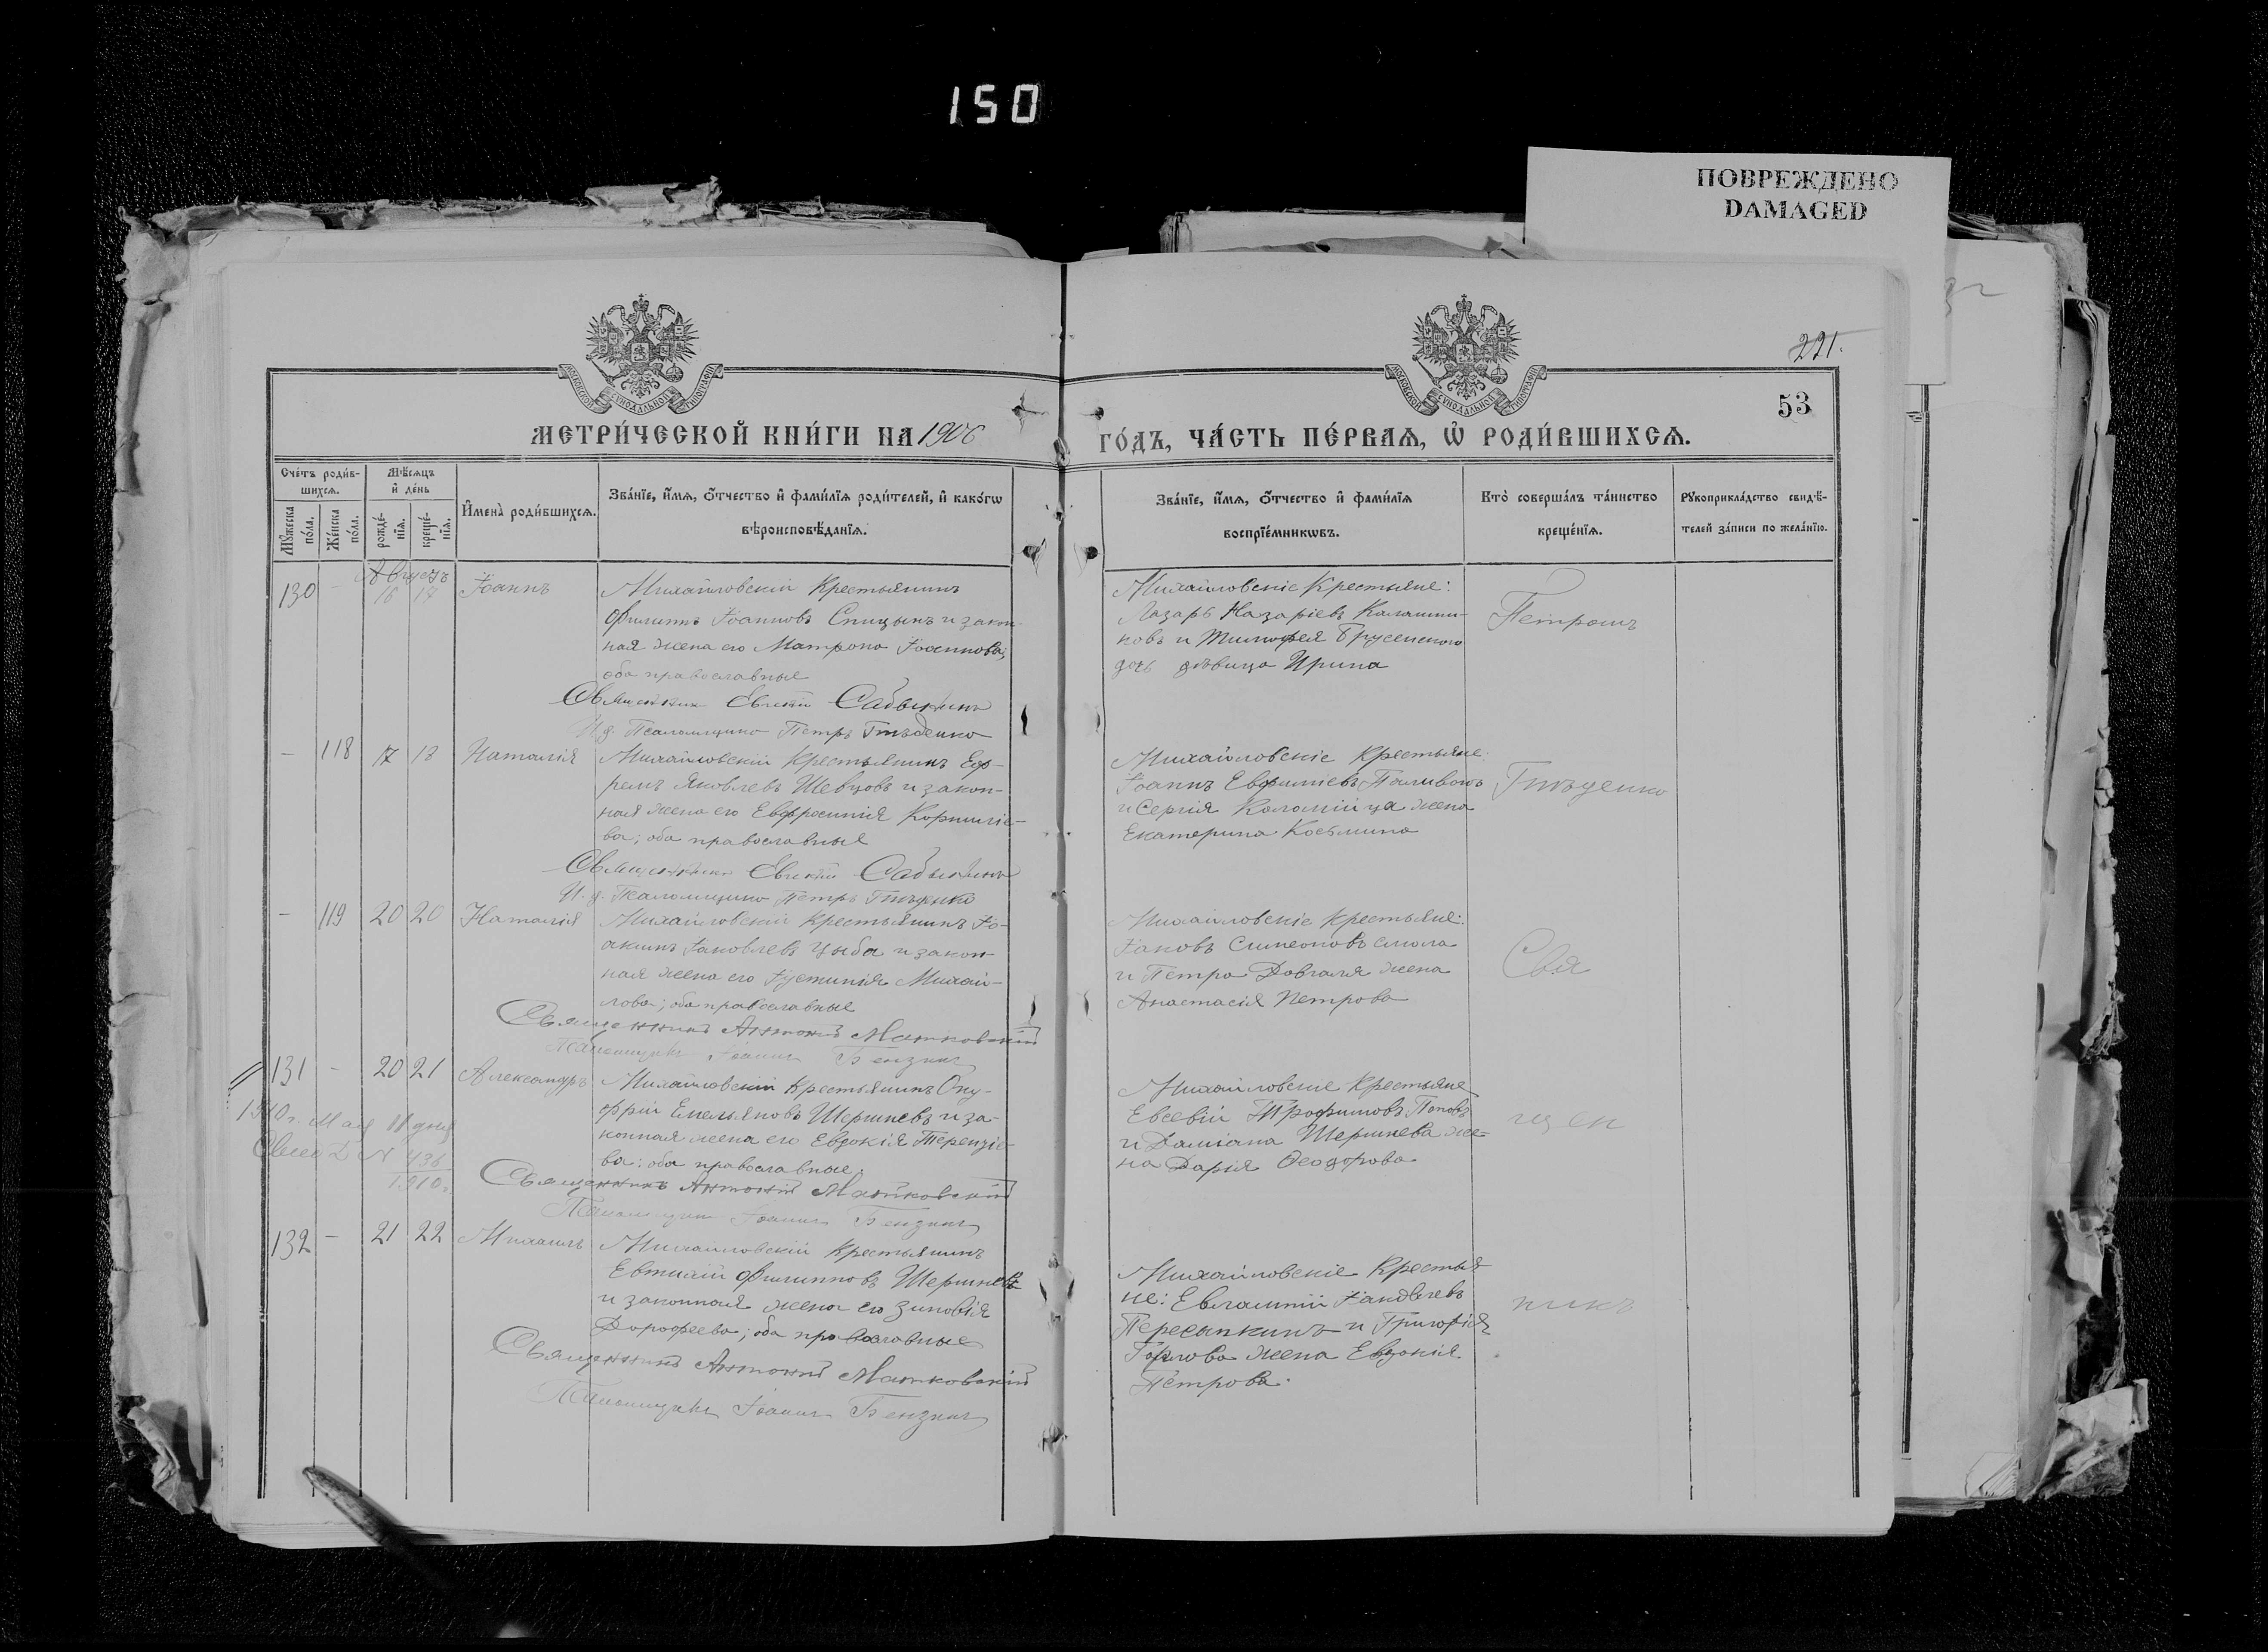 150
ПОВРЕЖДЕНО
DAMAGED
221.
53
МОСКОВСКОЙ СУНОДАЛЬНОЙ ТИПОГРАФІИ
МОСКОВСКОЙ СУНОДАЛЬНОЙ ТИПОГРАФІИ
МЕТРИ́ЧЕСКОЙ КНИ́ГИ НА 1906
ГО́ДЪ, ЧА́СТЬ ПЕ́РВАѦ, Ѡ҆ РОДИ́ВШИХСѦ.
Сче́тъ роди́в-
шихсѧ.
Мѣ́сѧцъ
и҆ де́нь
Мꙋ́жеска по́ла.
Же́нска по́ла.
рожде́-
нїѧ.
креще́-
нїѧ.
И҆мена̀ роди́вшихсѧ.
Зва́нїе, и҆́мѧ, ѻ҆́тчество и҆ фами́лїѧ роди́телей, и҆ како́гѡ
вѣроисповѣ́данїѧ.
Зва́нїе, и҆́мѧ, ѻ҆́тчество и҆ фами́лїѧ
воспрїе́мникѡвъ.
Кто̀ соверша́лъ та́инство
креще́нїѧ.
Рꙋкоприкла́дство свидѣ́-
телей за́писи по жела́нїю.
Августъ
130 - 16 17 Іоаннъ Михайловскій крестьянинъ
Филиппъ Іоанновъ Спицынъ и закон-
ная жена его Матрона Іоаннова;
оба православные
Священникъ Евгеній
И. д. Псаломщика Петръ Гнѣденко
Михайловскіе крестьяне:
Лазарь Назаріевъ Калашни-
ковъ и Тимофея Брусенского
дочь дѣвица Ирина
Петромъ
- 118 17 18 Наталія Михайловскій крестьянинъ Еф-
ремъ Яковлевъ Шевцовъ и закон-
ная жена его Евфросинія Корниліе-
ва; оба православные
Священникъ Евгеній
И. д. Псаломщика Петръ Гнѣденко
Михайловскіе крестьяне:
Іоаннъ Евфиміевъ
и Сергія Коломійца жена
Екатерина Косьмина
Гнѣденко
- 119 20 20 Наталія Михайловскій крестьянинъ Іо-
акимъ Іаковлевъ Цыба и закон-
ная жена его Іустинія Михай-
лова; оба православные
Священникъ Антоній Матковскій
Псаломщикъ Іоаннъ Бензинъ
Михайловскіе крестьяне:
Іаковъ Симеоновъ Смола
и Петра Довгаля жена
Анастасія Петрова
Свя
131 - 20 21 Александръ Михайловскій крестьянинъ Ону-
фрій Емельяновъ Шершневъ и за-
конная жена его Евдокія Терентіе-
ва; оба православные.
Священникъ Антоній Матковскій
Псаломщикъ Іоаннъ Бензинъ
1910 г. Мая 11 дня
N 436
1910 г.
Михайловскіе крестьяне
Евсевій Трофимовъ Поповъ
и Даміана Шершнева же-
на Дарія Ѳеодорова
щен
132 - 21 22 Михаилъ Михайловскій крестьянинъ
Евтихій Филипповъ Шершневъ
и законная жена его Зиновія
Дорофеева; оба православные
Священникъ Антоній Матковскій
Псаломщикъ Іоаннъ Бензинъ
Михайловскіе Крестья-
не: Евлампій Іаковлевъ
Пересыпкинъ и Григорія
жена Евдокія
Петрова.
никъ